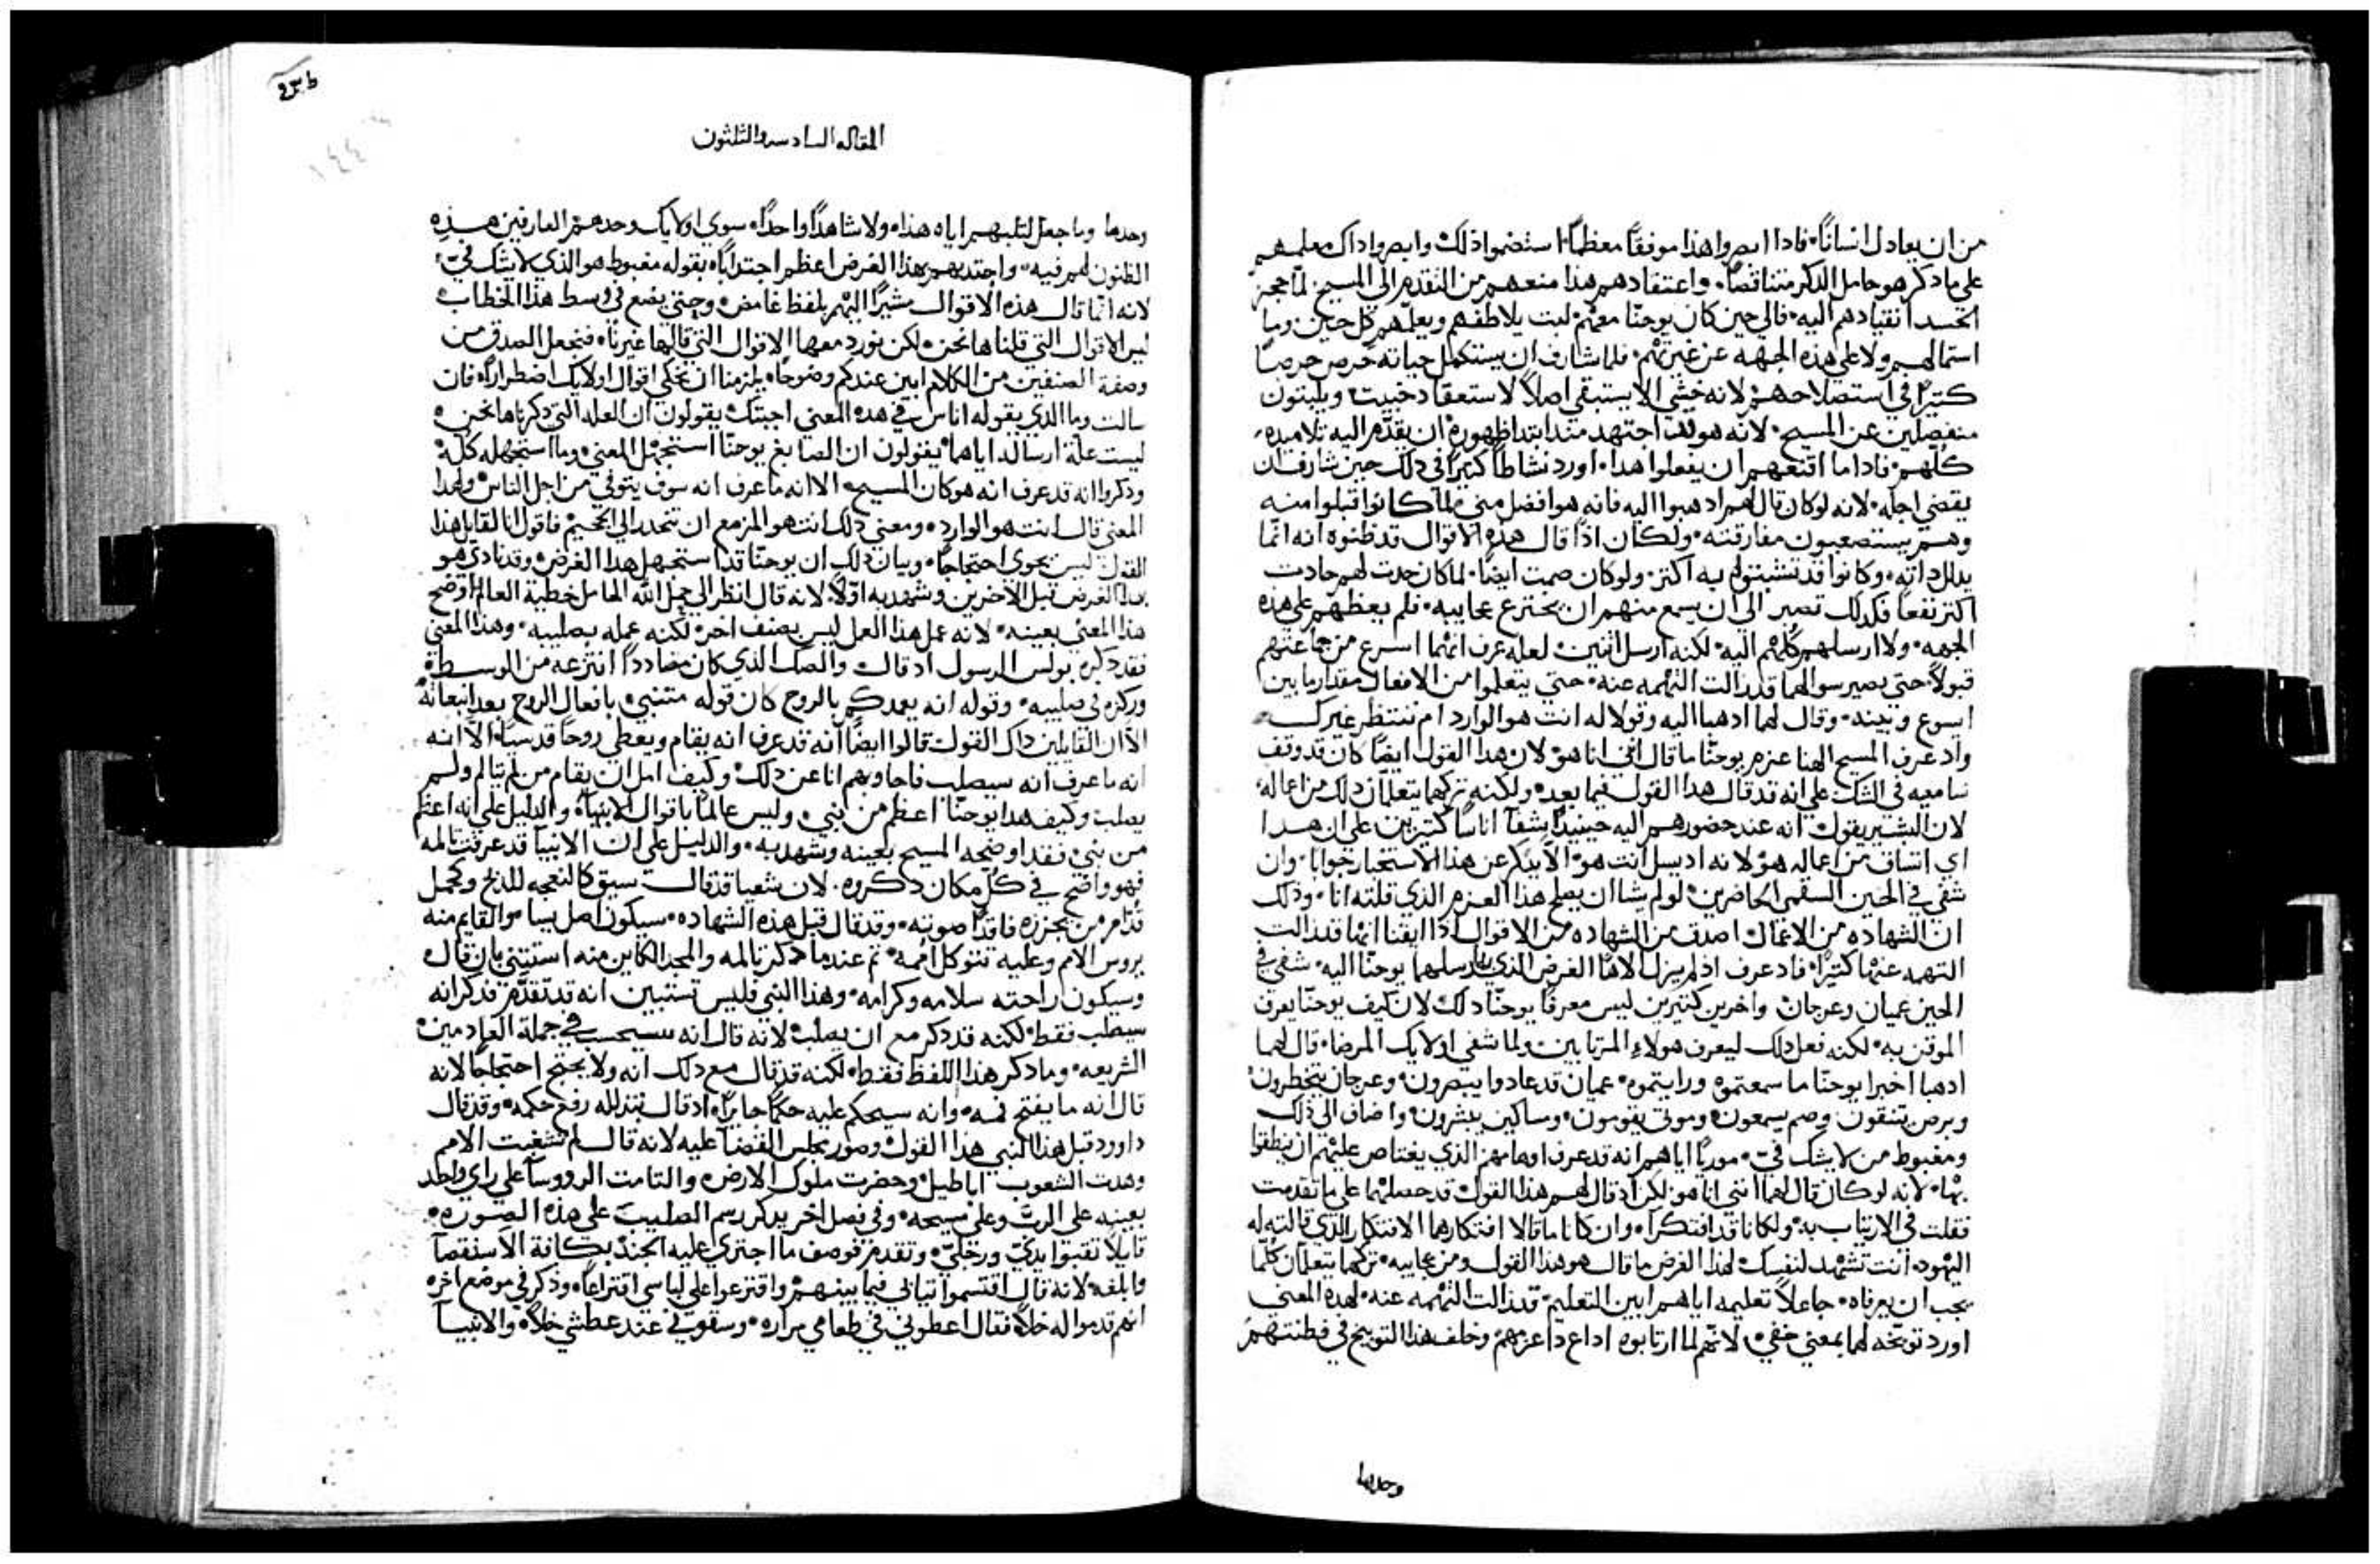 من ان يعادل انسانًا فادا ابصروا هذا موفقًا معظمًا استضموا ذلك وابصروا داك معلمهم
على ما دكر هو حامل الدكر متناقصًا واعتقادهم هذا منعهم من التقدم الى المسيح لما حجز
الحسد انقيادهم اليه فالى حين كان يوحنا معهم لبت يلاطفهم ويعلمهم كل حين وما
استمالهم ولا على هذه الجهه عن غيرتهم فلما شارف ان يستكمل حياته حرص حرصًا
كتيرًا في استصلاحهم لانه خشي الا يستبقي اصلاً لاستعقاد خبيت ويلبتون
منفصلين عن المسيح لانه هو فقد اجتهد مند ابتدا ظهوره ان يقدم اليه تلاميده
كلهم فاداما اقنعهم ان يفعلوا هدا اورد نشاطًا كتيرًا في دلك حين شارف ان
يقضي اجله لانه لو كان قال لهم ادهبوا اليه فانه هو افضل مني لما كانوا قبلوا منه
وهم يستصعبون مفارقته ولكان اذا قال هذه الاقوال قد ظنوه انه انما
يدلل داته وكانوا قد تشبتوا به اكتر ولو كان صمت ايضًا لما كان حدت لهم حادت
اكتر نفعًا فكدلك تصبر الى ان يسمع منهم ان يخترع عجاييه فلم يعظهم على هده
الجهه ولا ارسلهم كلهم اليه لكنه ارسل اتنين لعله عرف انهما اسرع من جماعتهم
قبولاً حتى يصير سوالهما قد زالت التهمه عنه حتى يتعلموا من الافعال مقدار ما بين
ايسوع وبينه وقال لهما ادهبا اليه وقولا له انت هو الوارد ام ننتظر غيرك
واد عرف المسيح الهنا عزم يوحنا ما قال انني انا هو لان هدا القول ايضًا كان قد وقف
سامعيه في الشك على انه قد قال هدا القول فيما بعده ولكنه تركهما يتعلمان دلك من اعماله
لان البشير يقول انه عند حضورهم اليه حينيدٍ شفا اناسًا كتيرين على ان هدا
اي اتساف من اعماله هو لانه اد يسل انت هو الا يبكر عن هذا الاستخبار جوابا وان
شفي في الحين السقمى الحاضرين لو لم يشا ان يصلح هذا العزم الذي قلته انا وذلك
ان الشهاده من الاعمال اصدق من الشهاده من الاقوال اذا ايقنا انها قد زالت
التهمه عنها كتيرًا فاد عرف اد لم يزل الاهًا الغرض الذي به ارسلهما يوحنا اليه شفي في
الحين عميان وعرجان واخرين كتيرين ليس معرفًا يوحنا دلك لان كيف يوحنا يعرف
الموقن به لكنه فعل دلك ليعرف هولاء المرتابين ولما شفي اولايك المرضا قال لهما
ادهبا اخبرا يوحنا ما سمعتموه ورايتموه عميان قد عادوا يبصرون وعرجان يتخطرون
وبرص يتنقون وصم يسمعون وموتى يقومون ومساكين يبشرون واضاف الى ذلك
ومغبوط من لا يشك فيّ موريًا اياهم انه قد عرف اوهامهم الذي يعتاص عليهم ان ينطقوا
بها لانه لو كان قال لهما انني انا هو لكن اد قال لهم هذا القول قد حصلهما على ما تقدمت
فقلت في الارتياب به ولكانا قد افتكرا وان كانا ما قالا افتكارهما الافتكار الذي قالته له
اليهود انت تشهد لنفسك لهذا الغرض ما قال هو هذا القول ومن عجاييه تركهما يتعلمان كلما
يجب ان يعرفاه جاعلاً تعليمه اياهم ابين التعليم قد زالت التهمه عنه لهده المعنى
اورد توبيخه لهما بمعنى خفي لانهم لما ارتابوه اداع دا عزمهم وخلف هذا التوبيخ في فطنتهم
وحدها
المقاله السادسه والتلتون
وحدها وما جعل لتلبهم اياه هذا ولا شاهدًا واحدًا سوى اولايك وحدهم العارفين هذه
الظنون لهم فيه واجتدبهم بهذا الغرض اعظم اجتدابًا بقوله مغبوط هو الذي لا يشك فيّ
لانه انما قال هذه الاقوال مشيرًا اليهم بلفظ غامض وحتى يضع في وسط هذا الخطاب
ليس الاقوال التي قلناها نحن لكن نورد معها الاقوال التي قالها غيرنا فنجعل الصدق من
وصفة الصنفين من الكلام ابين عندكم وضوحًا يلزمنا ان نحكي اقوال اولايك اضطرارًا فان
سالت وما الذي يقوله اناس في هده المعنى اجبتك يقولون ان العله التي دكرناها نحن
ليست علة ارساله اياهما يقولون ان الصابغ يوحنا استجهل المعنى وما استجهله كله
وذكروا انه قد عرف انه هو كان المسيح الا انه ما عرف انه سوف يتوفي من اجل الناس ولهدا
المعنى قال انت هو الوارد ومعنى ذلك انت هو المزمع ان تنحدر الى الجحيم فاقول انا لقايل هذا
القول ليس يحوي احتجاجًا وبيان ذلك ان يوحنا قد استجهل هدا الغرض وقد نادي هو
بهذا الغرض قبل الاخرين وشهد به اولاً لانه قال انظر الى حمل الله الحامل خطية العالم اوضح
هذا المعنى بعينه لانه عمل هذا العمل ليس بصنف اخر لكنه عمله بصليبه وهذا المعنى
فقد دكره بولس الرسول اد قال والصك الذي كان مضاددًا انتزعه من الوسط
وركزه في صليبه وقوله انه يعمدكم بالروح كان قوله متنبي بافعال الروح بعد انبعاته
الا ان القايلين داك القول قالوا ايضًا انه قد عرف انه يقام ويعطي روحًا قدسيًا الا انه
انه ما عرف انه سيصلب فاجاوبهم انا عن دلك وكيف امل ان يقام من لم يتالم ولم
يصلب وكيف هدا يوحنا اعظم من نبي وليس عالمًا باقوال الانبيا والدليل على انه اعظم
من نبي فقد اوضحه المسيح بعينه وشهد به والدليل على ان الانبيا قد عرفت المه
فهو واضح في كل مكان دكروه لان شعيا قد قال سيق كالنعجه للدبح وكحمل
قدام من يجزره فاقدًا صوته وقد قال قبل هذه الشهاده سيكون اصل يسا والقايم منه
يروس الامم وعليه تتوكل امم تم عندما دكر تالمه والمجد الكاين منه استتني بان قال
وسيكون راحته سلامه وكرامه وهذا النبي فليس تستبين انه قد تقدم فدكر انه
سيصلب فقط لكنه قد دكر مع ان يصلب لانه قال انه سيحسب في جملة العادمين
الشريعه وما دكر هذا اللفظ فقط لكنه قد قال مع دلك انه ولا يحتج احتجاجًا لانه
قال انه ما يفتح فمه وانه سيحكم عليه حكمًا جايرًا اد قال بتدلله رفع حكمه وقد قال
داوود قبل هذا النبي هذا القول وصور مجلس القضا عليه لانه قال لم تشغبت الامم
وهدت الشعوب اباطيل وحضرت ملوك الارض والتامت الرووسا على راي واحد
بعينه على الرب وعلى مسيحه وفي فصل اخر يدكر رسم الصليب على هذه الصوره
قايلاً تقبوا يديّ ورجليّ وتقدم فوصف ما اجترى عليه الجند بكافة الاستقصا
وابلغه لانه قال اقتسموا تيابي فيما بينهم واقترعوا على لباسي اقتراعًا وذكر في موضع اخر
انهم قدموا له خلاً فقال اعطوني في طعامي مراره وسقوني عند عطشي خلاً والانبيا